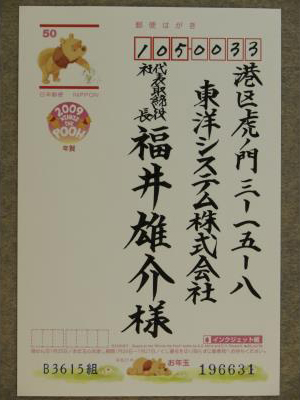 郵便はがき
50
日本郵便 NIPPON
2009
WINNIE THE
POOH
年賀
1050033
港区虎ノ門三-一五-八
東洋システム株式会社
代表取締役
社長
福井雄介様
インクジェット紙
お年玉
B3615組
196631